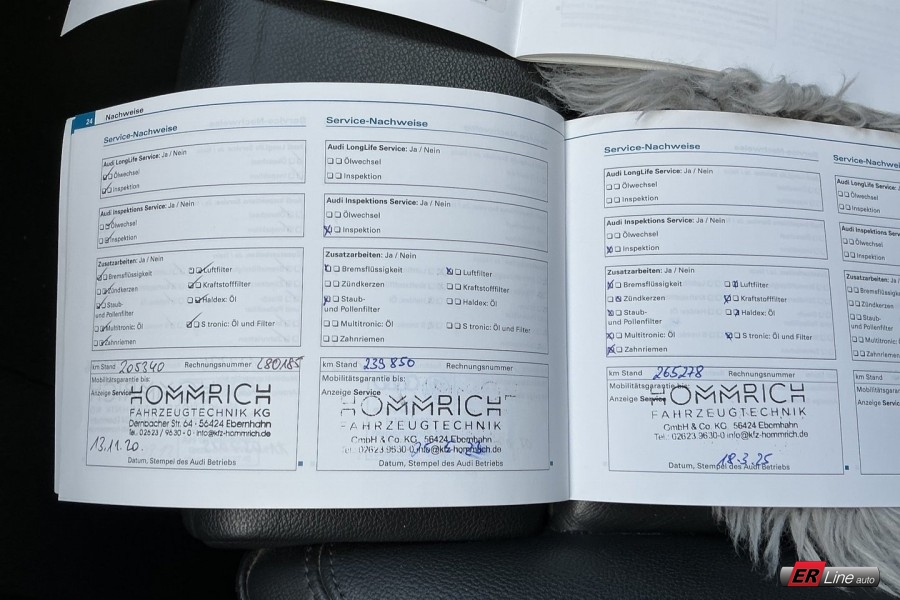 24 Nachweise
Service-Nachweise
Audi LongLife Service: Ja / Nein
Ölwechsel
Inspektion
Audi Inspektions Service: Ja / Nein
Ölwechsel
Inspektion
Zusatzarbeiten: Ja / Nein
Bremsflüssigkeit Luftfilter
Zündkerzen Kraftstofffilter
Staub- Haldex: Öl
und Pollenfilter
Multitronic: Öl S tronic: Öl und Filter
Zahnriemen
km Stand 205340 Rechnungsnummer L80185
Mobilitätsgarantie bis:
Anzeige Service
HOMMRICH
FAHRZEUGTECHNIK KG
Dernbacher Str. 64 · 56424 Ebernhahn
Tel. 02623 / 9630 - 0 · info@kfz-hommrich.de
13.11.20.
Datum, Stempel des Audi Betriebs
Service-Nachweise
Audi LongLife Service: Ja / Nein
Ölwechsel
Inspektion
Audi Inspektions Service: Ja / Nein
Ölwechsel
Inspektion
Zusatzarbeiten: Ja / Nein
Bremsflüssigkeit Luftfilter
Zündkerzen Kraftstofffilter
Staub- Haldex: Öl
und Pollenfilter
Multitronic: Öl S tronic: Öl und Filter
Zahnriemen
km Stand 239850 Rechnungsnummer
Mobilitätsgarantie bis:
Anzeige Service
HOMMRICH
FAHRZEUGTECHNIK
GmbH & Co. KG, 56424 Ebernhahn
Tel.: 02623.9630-0, info@kfz-hommrich.de
Datum, Stempel des Audi Betriebs
Service-Nachweise
Audi LongLife Service: Ja / Nein
Ölwechsel
Inspektion
Audi Inspektions Service: Ja / Nein
Ölwechsel
Inspektion
Zusatzarbeiten: Ja / Nein
Bremsflüssigkeit Luftfilter
Zündkerzen Kraftstofffilter
Staub- Haldex: Öl
und Pollenfilter
Multitronic: Öl S tronic: Öl und Filter
Zahnriemen
km Stand 265278 Rechnungsnummer
Mobilitätsgarantie bis:
Anzeige Service
HOMMRICH
FAHRZEUGTECHNIK
GmbH & Co. KG, 56424 Ebernhahn
Tel.: 02623.9630-0 info@kfz-hommrich.de
18.3.25
Datum, Stempel des Audi Betriebs
Service-Nachweis
Audi LongLife Service:
Ölwechsel
Inspektion
Audi Inspektions Service
Ölwechsel
Inspektion
Zusatzarbeiten: Ja / Nein
Bremsflüssigkeit
Zündkerzen
Staub-
und Pollenfilter
Multitronic: Öl
Zahnriemen
km Stand
Mobilitätsgarantie
Anzeige Service
Datum
ER Line auto